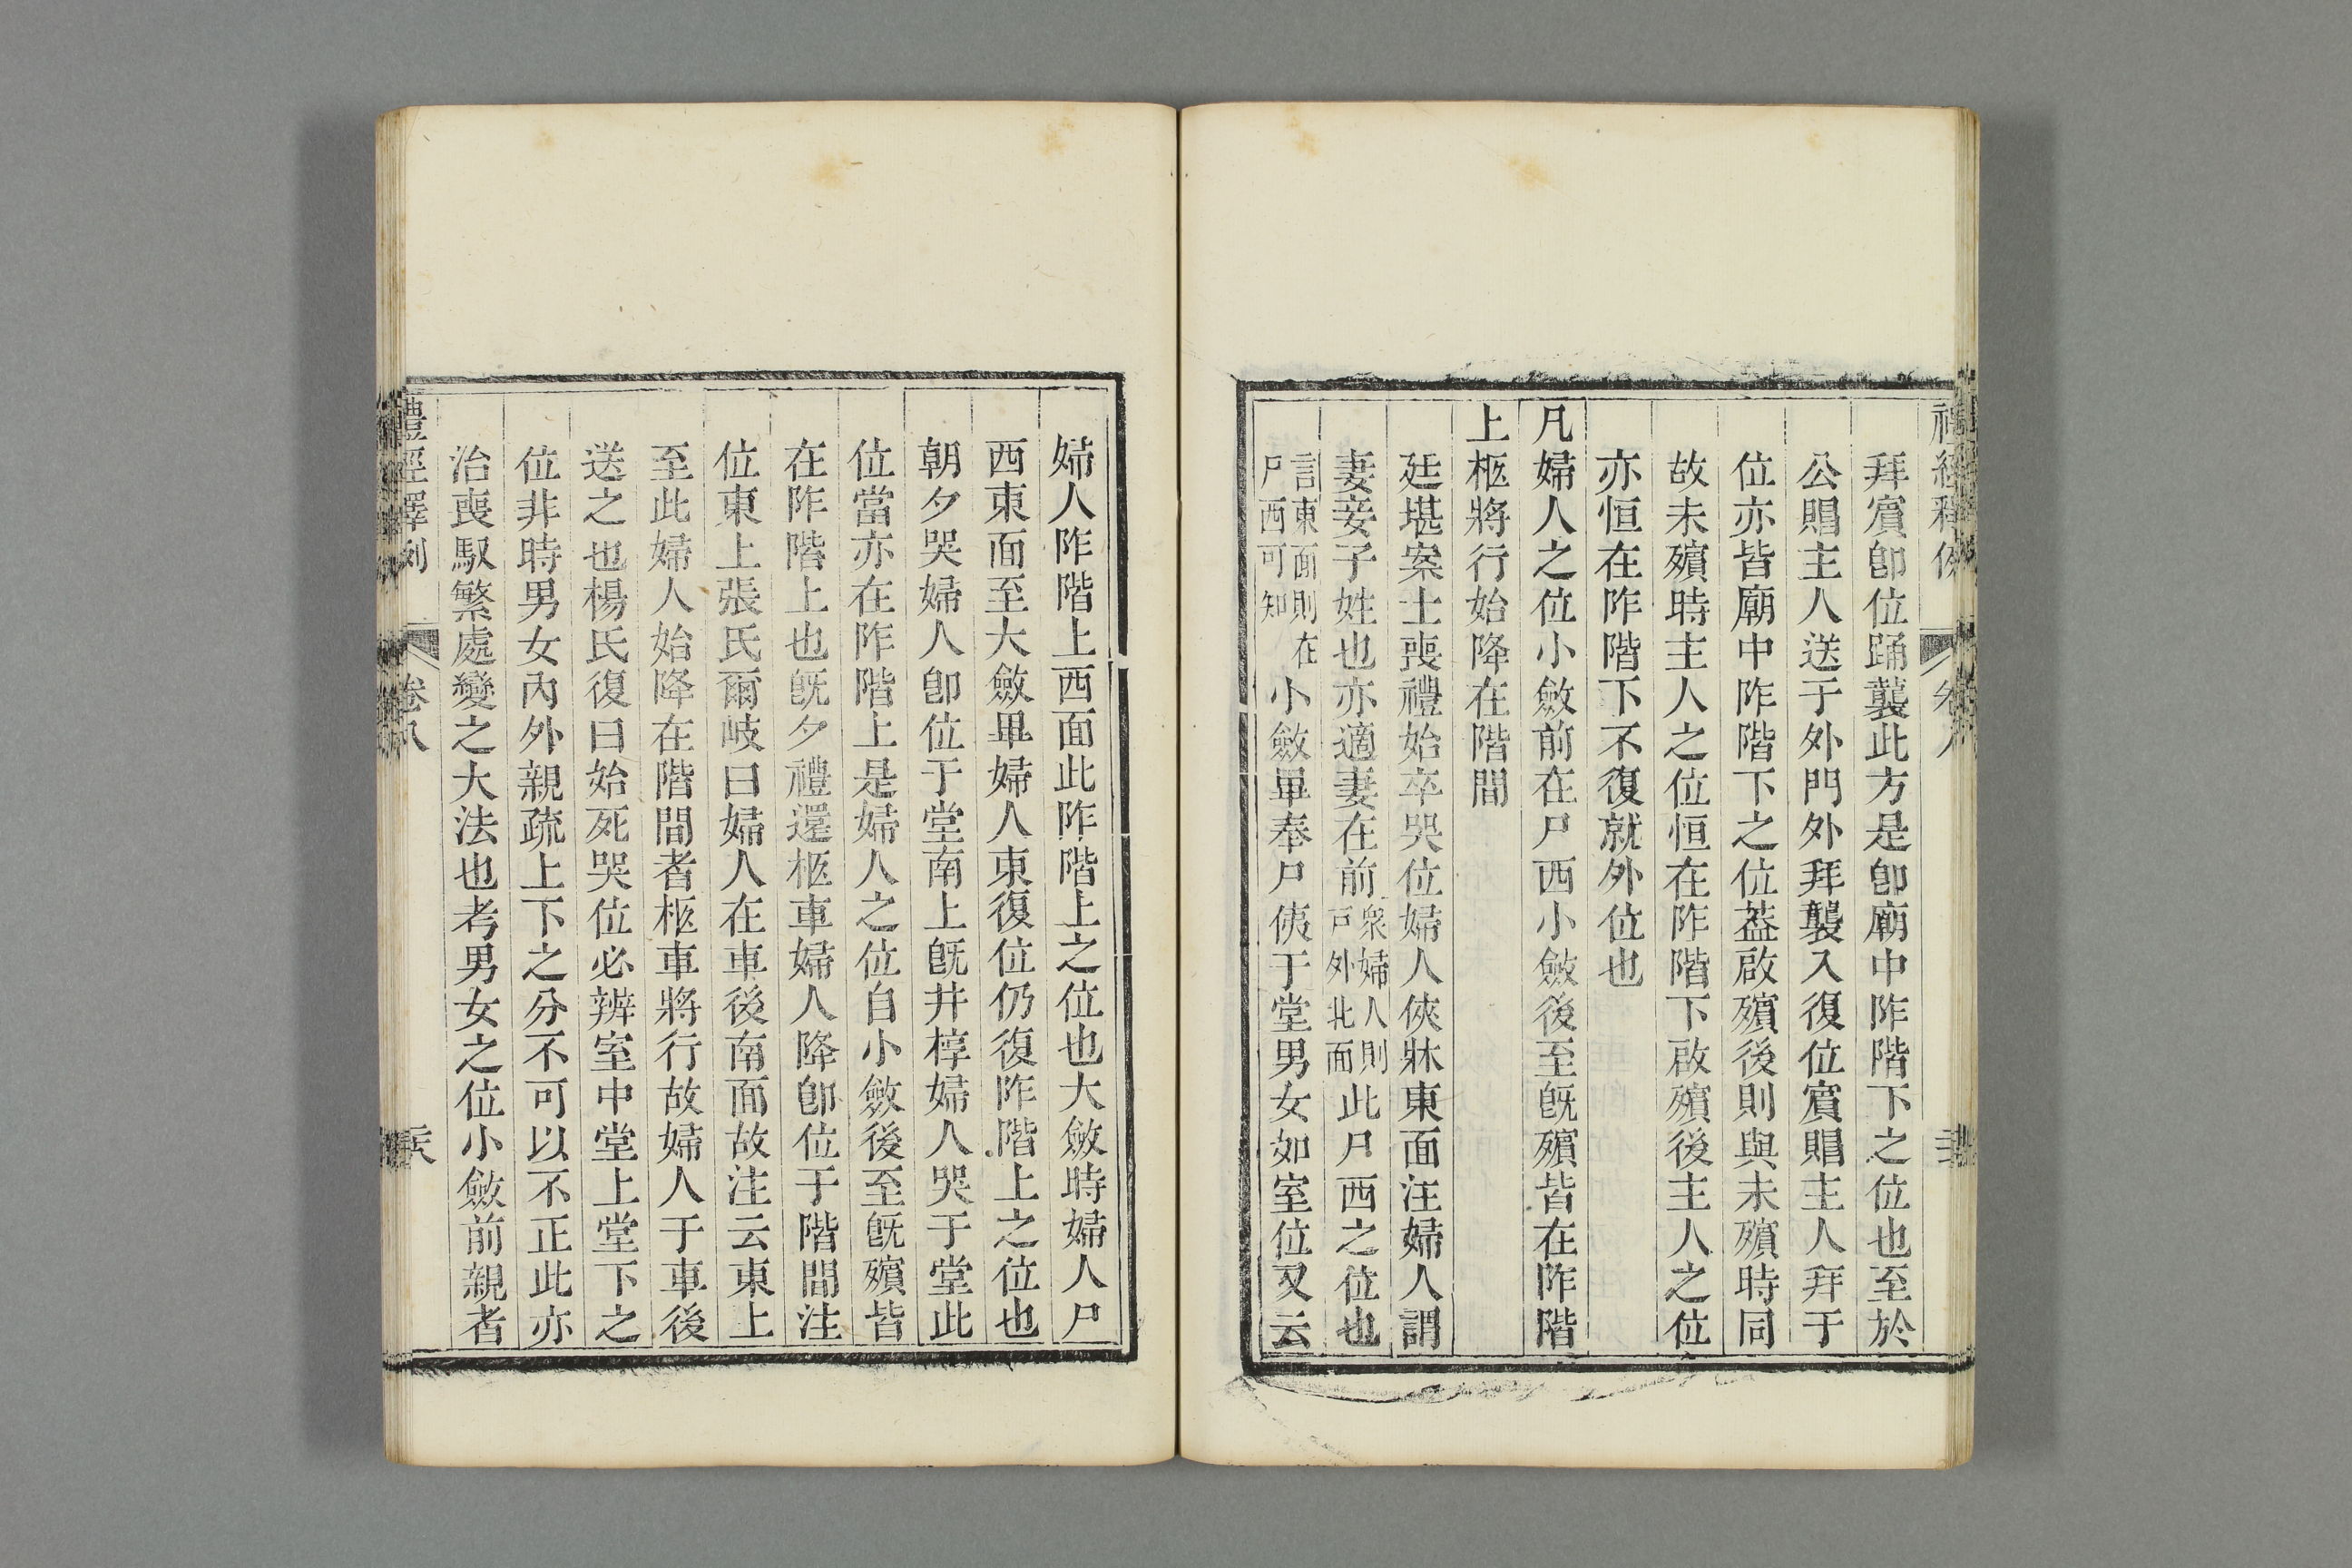 拜賔卽位踊襲此方是卽廟中阼階下之位也至於
公賵主人送于外門外拜襲入復位賔賵主人拜于
位亦皆廟中阼階下之位葢啟殯後則與未殯時同
故未殯時主人之位恒在阼階下啟殯後主人之位
亦恒在阼階下不復就外位也
凡婦人之位小斂前在尸西小斂後至旣殯皆在阼階
上柩將行始降在階間
廷堪案士喪禮始卒哭位婦人俠牀東面注婦人謂
妻妾子姓也亦適妻在前衆婦人則戸外北面此尸西之位也
言東面則在尸西可知小斂畢奉尸侇于堂男女如室位又云
婦人阼階上西面此阼階上之位也大斂時婦人尸
西東面至大斂畢婦人東復位仍復阼階上之位也
朝夕哭婦人卽位于堂南上旣井椁婦人哭于堂此
位當亦在阼階上是婦人之位自小斂後至旣殯皆
在阼階上也旣夕禮還柩車婦人降卽位于階間注
位東上張氏爾岐曰婦人在車後南面故注云東上
至此婦人始降在階間者柩車將行故婦人于車後
送之也楊氏復曰始死哭位必辨室中堂上堂下之
位非時男女內外親疏上下之分不可以不正此亦
治喪馭繁處變之大法也考男女之位小斂前親者
禮經釋例
卷八